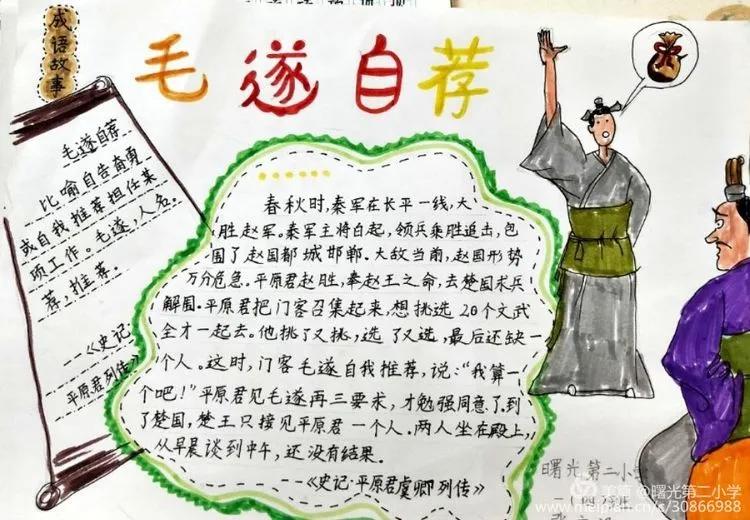 成语故事
毛遂自荐
毛遂自荐
比喻自告奋勇
或自我推荐担任某
项工作。毛遂,人名。
荐,推荐。
——《史记·
平原君列传》
春秋时,秦军在长平一线,大
胜赵军。秦军主将白起,领兵乘胜追击,包
围了赵国都城邯郸。大敌当前,赵国形势
万分危急。平原君赵胜,奉赵王之命,去楚国求兵
解围。平原君把门客召集起来,想挑选20个文武
全才一起去。他挑了又挑,选了又选,最后还缺一
个人。这时,门客毛遂自我推荐,说:“我算一
个吧!”平原君见毛遂再三要求,才勉强同意了。到
了楚国,楚王只接见平原君一个人。两人坐在殿上,
从早晨谈到中午,还没有结果。
——《史记·平原君虞卿列传》
曙光第二小学
美篇 @曙光第二小学
www.meipian.cn/s/30866988